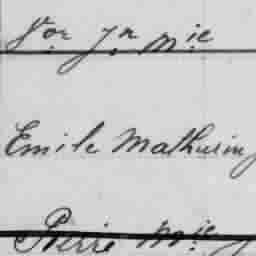 Jn Mie
Emile Mathurin
Pierre Mie